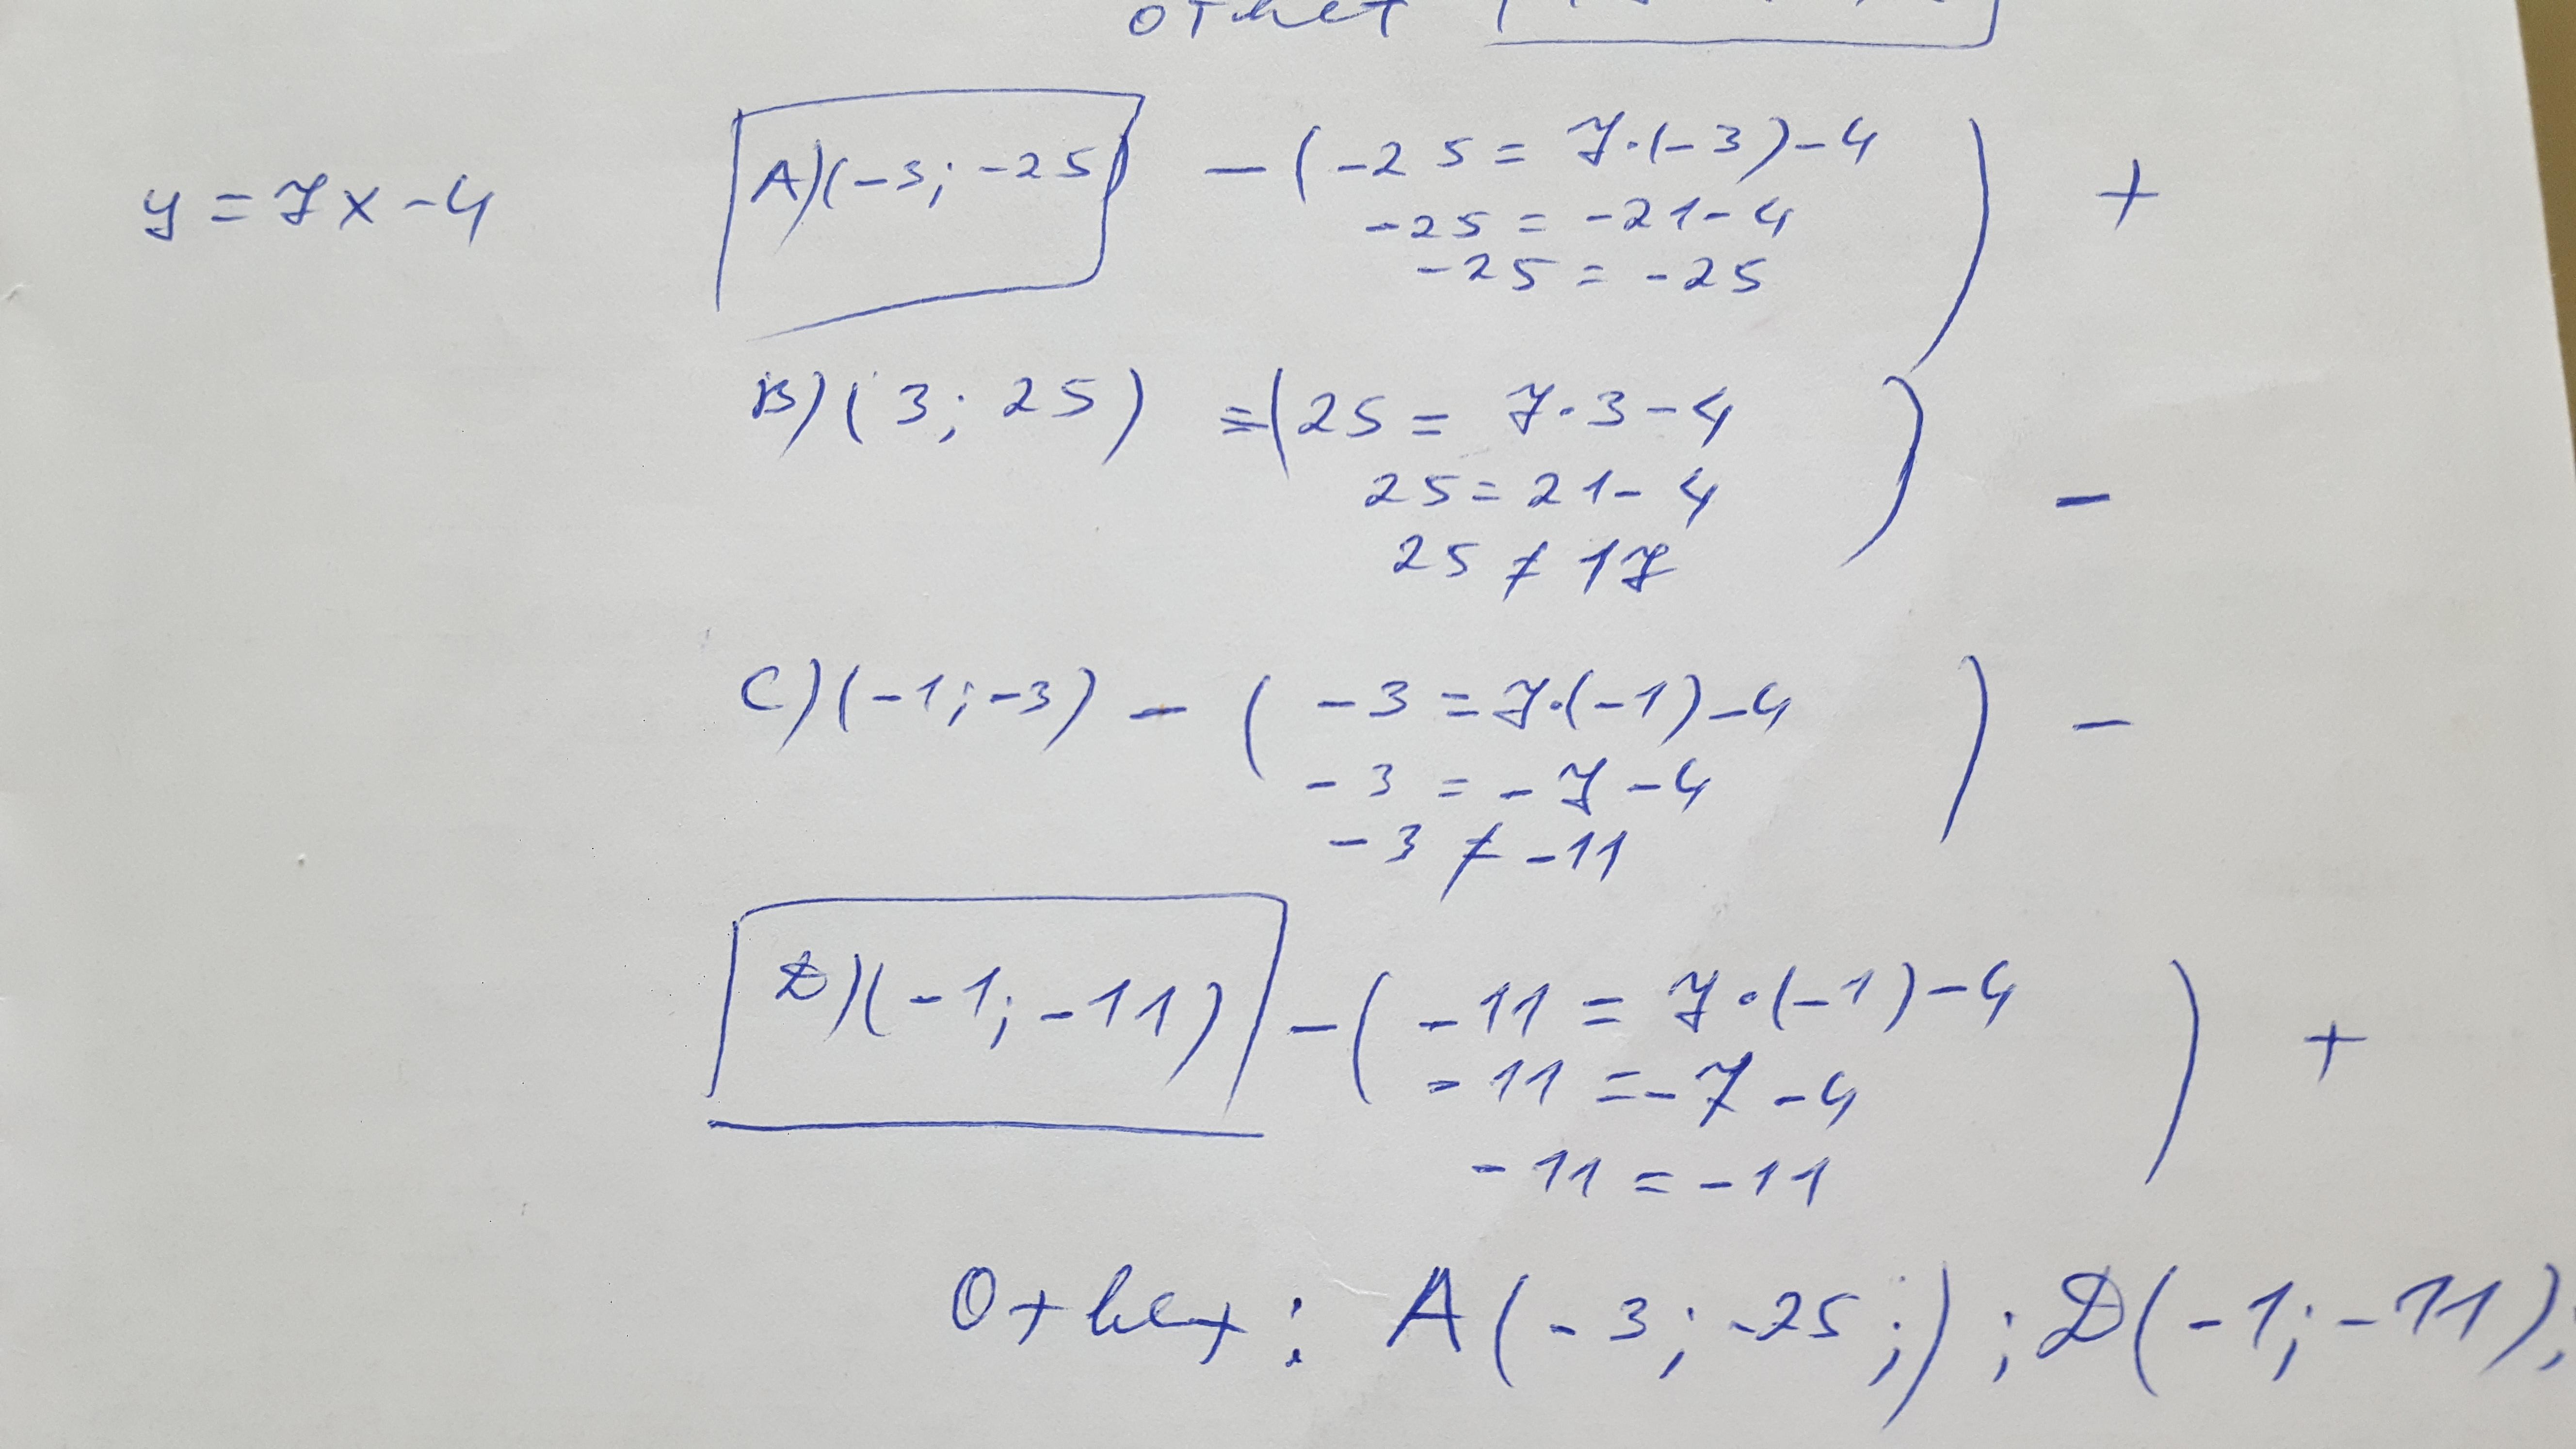 ответ
y = 7x - 4
A) (-3; -25) - ( -25 = 7·(-3) - 4 ) +
-25 = -21 - 4
-25 = -25
B) (3; 25) = ( 25 = 7·3 - 4 ) -
25 = 21 - 4
25 ≠ 17
C) (-1; -3) - ( -3 = 7·(-1) - 4 ) -
-3 = -7 - 4
-3 ≠ -11
D) (-1; -11) - ( -11 = 7·(-1) - 4 ) +
-11 = -7 - 4
-11 = -11
Ответ: A(-3; -25;) ; D(-1; -11);